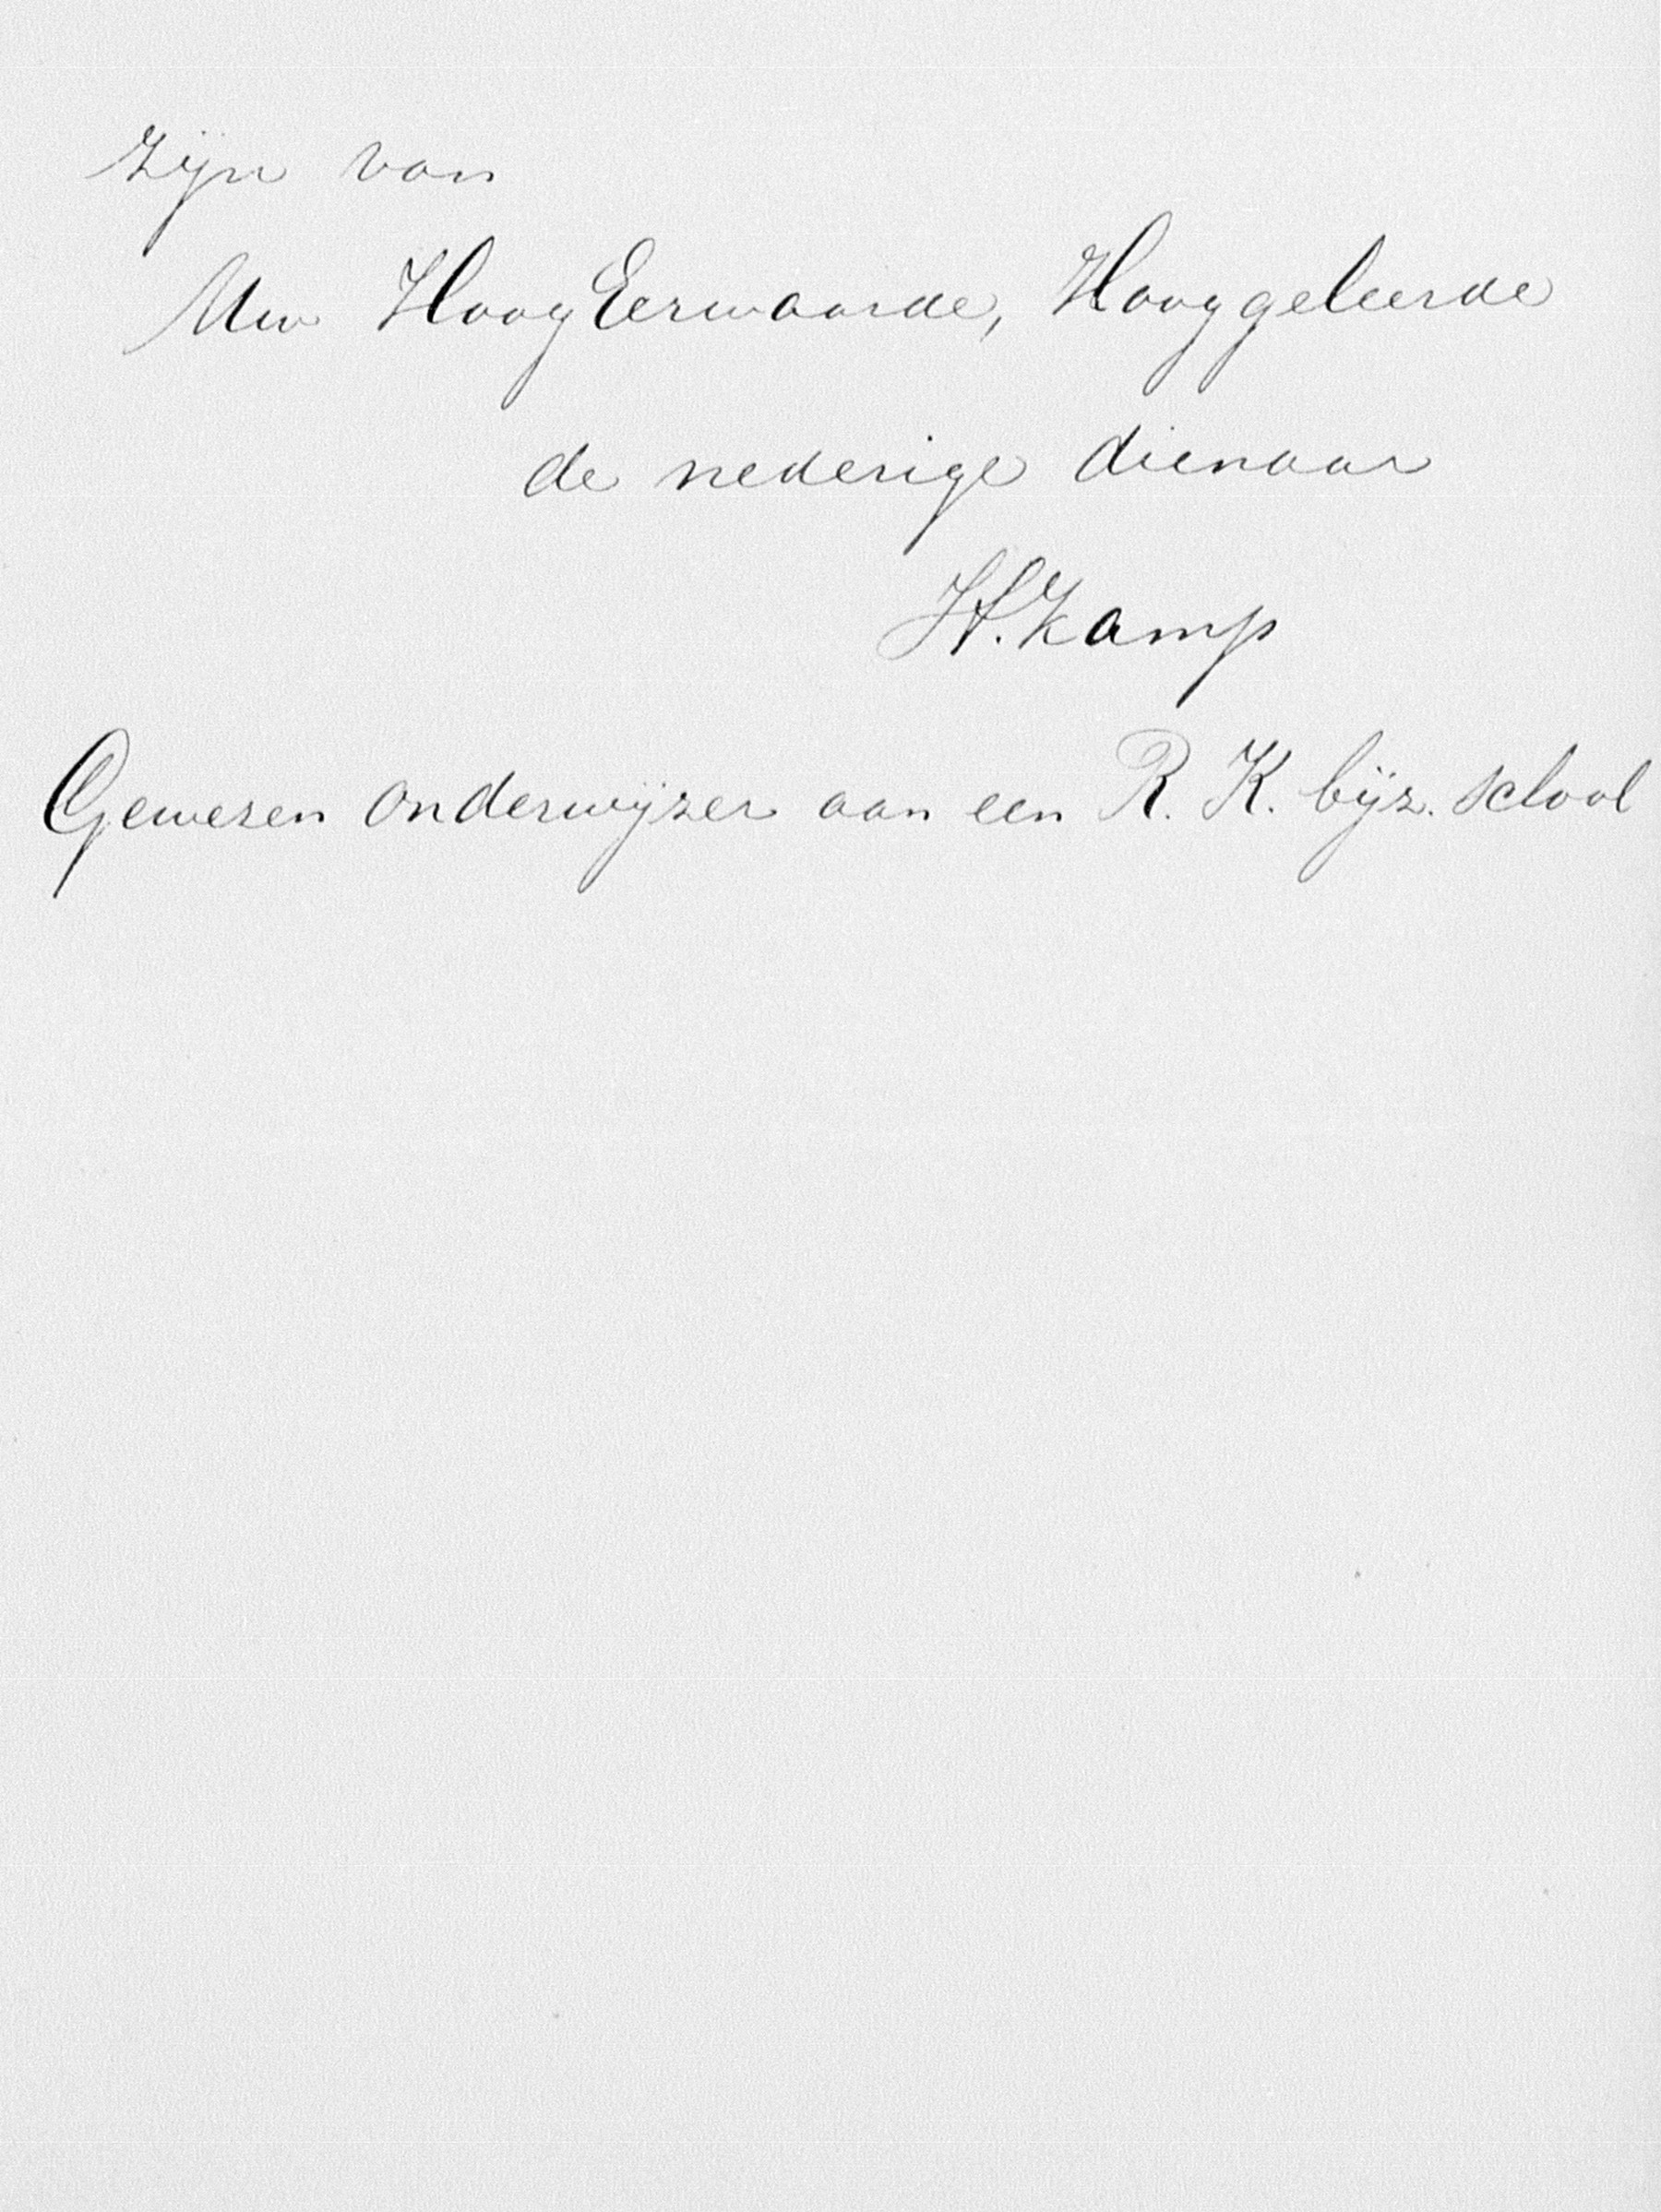 zijn van
Uw HoogEerwaarde, Hooggeleerde
de nederige dienaar
H. Kamp
Gewezen onderwijzer aan een R. K. bijz. school